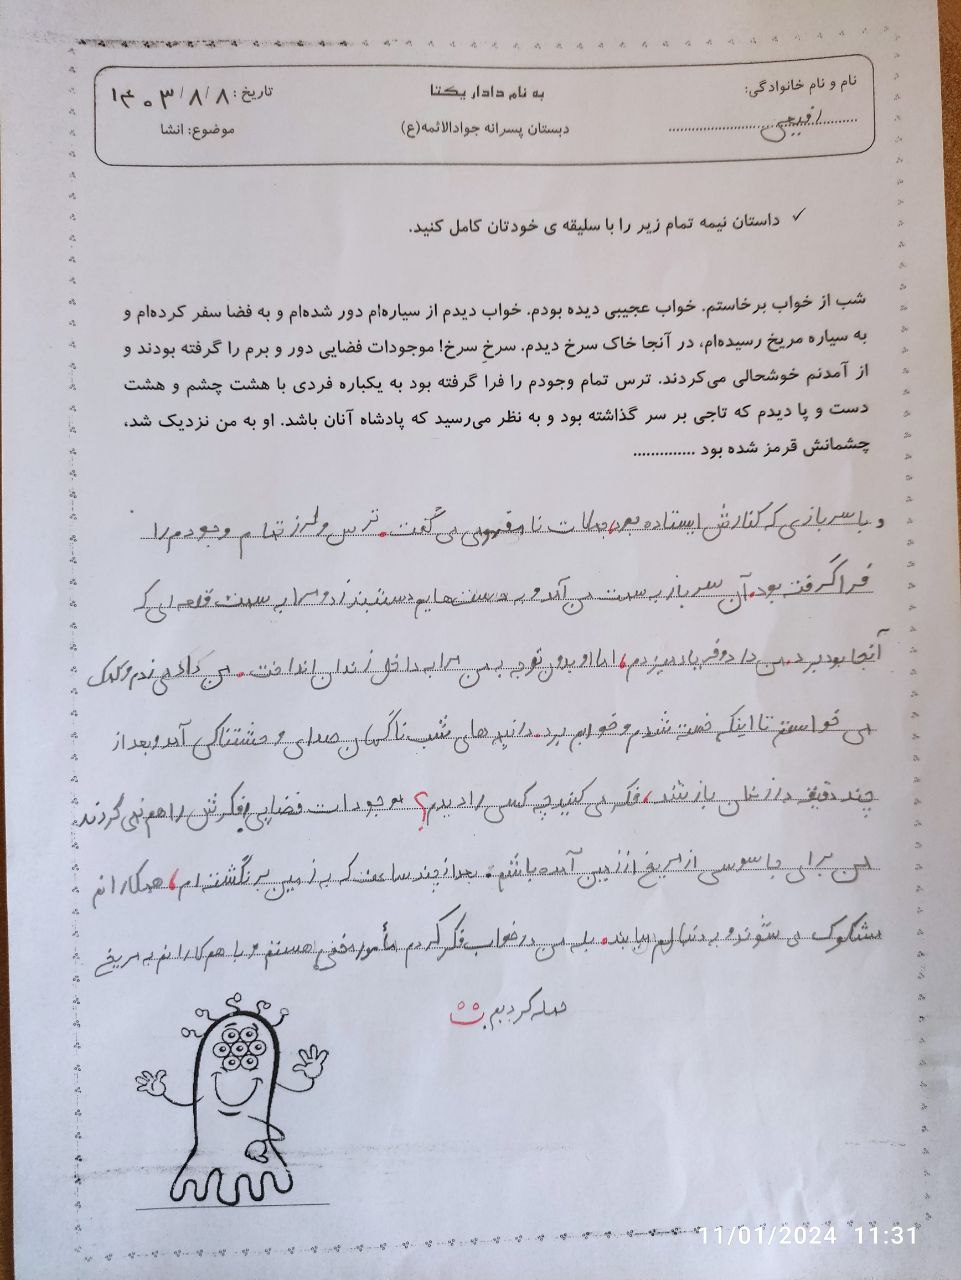 نام و نام خانوادگی:
به نام دادار یکتا
تاریخ: ۱۴۰۳/۸/۸
دبستان پسرانه جوادالائمه(ع)
موضوع: انشا
✓ داستان نیمه تمام زیر را با سلیقه ی خودتان کامل کنید.
شب از خواب برخاستم. خواب عجیبی دیده بودم. خواب دیدم از سیاره‌ام دور شده‌ام و به فضا سفر کرده‌ام و
به سیاره مریخ رسیده‌ام، در آنجا خاک سرخ دیدم. سرخِ سرخ! موجودات فضایی دور و برم را گرفته بودند و
از آمدنم خوشحالی می‌کردند. ترس تمام وجودم را فرا گرفته بود به یکباره فردی با هشت چشم و هشت
دست و پا دیدم که تاجی بر سر گذاشته بود و به نظر می‌رسید که پادشاه آنان باشد. او به من نزدیک شد،
چشمانش قرمز شده بود ..............
و با سربازی که کنارش ایستاده بود، جملات نامفهومی می گفت. ترس و لرز تمام وجودم را
فرا گرفت بود. آن سرباز به سمت من آمد و به دست هایم دستبند زد و مرا به سمت قلعه ای که
آنجا بود برد. من داد و فریاد میزدم، اما او بدون توجه به من مرا به داخل زندان انداخت. من داد می زدم و کمک
می خواستم تا اینکه خسته شدم و خوابم برد. در نیمه های شب ناگهان صدای وحشتناکی آمد و بعد از
چند دقیقه در زندان باز شد، فکر می کنید چه کسی را دیدم؟ موجودات فضایی فکرش را هم نمی کردند
من برای جاسوسی از مریخ از زمین آمده باشم. بعد از چند ساعت که به زمین برنگشته ام، همکارانم
مشکوک می شوند و به دنبالم میایند. بله من در خواب فکر کردم مأمور مخفی هستم و با همکارانم به مریخ
حمله کردیم.
11/01/2024 11:31